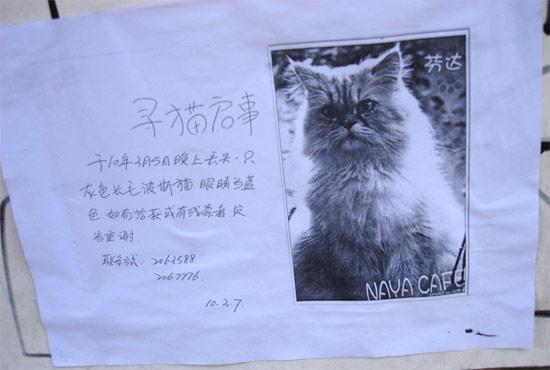 寻猫启事
于10年3月5日晚上丢失一只
灰色长毛波斯猫 眼睛为蓝
色 如有拾获或有线索者 定
当重谢
联系方式: 2063588
2067776
10.3.7
芬达
NAYA CAFE